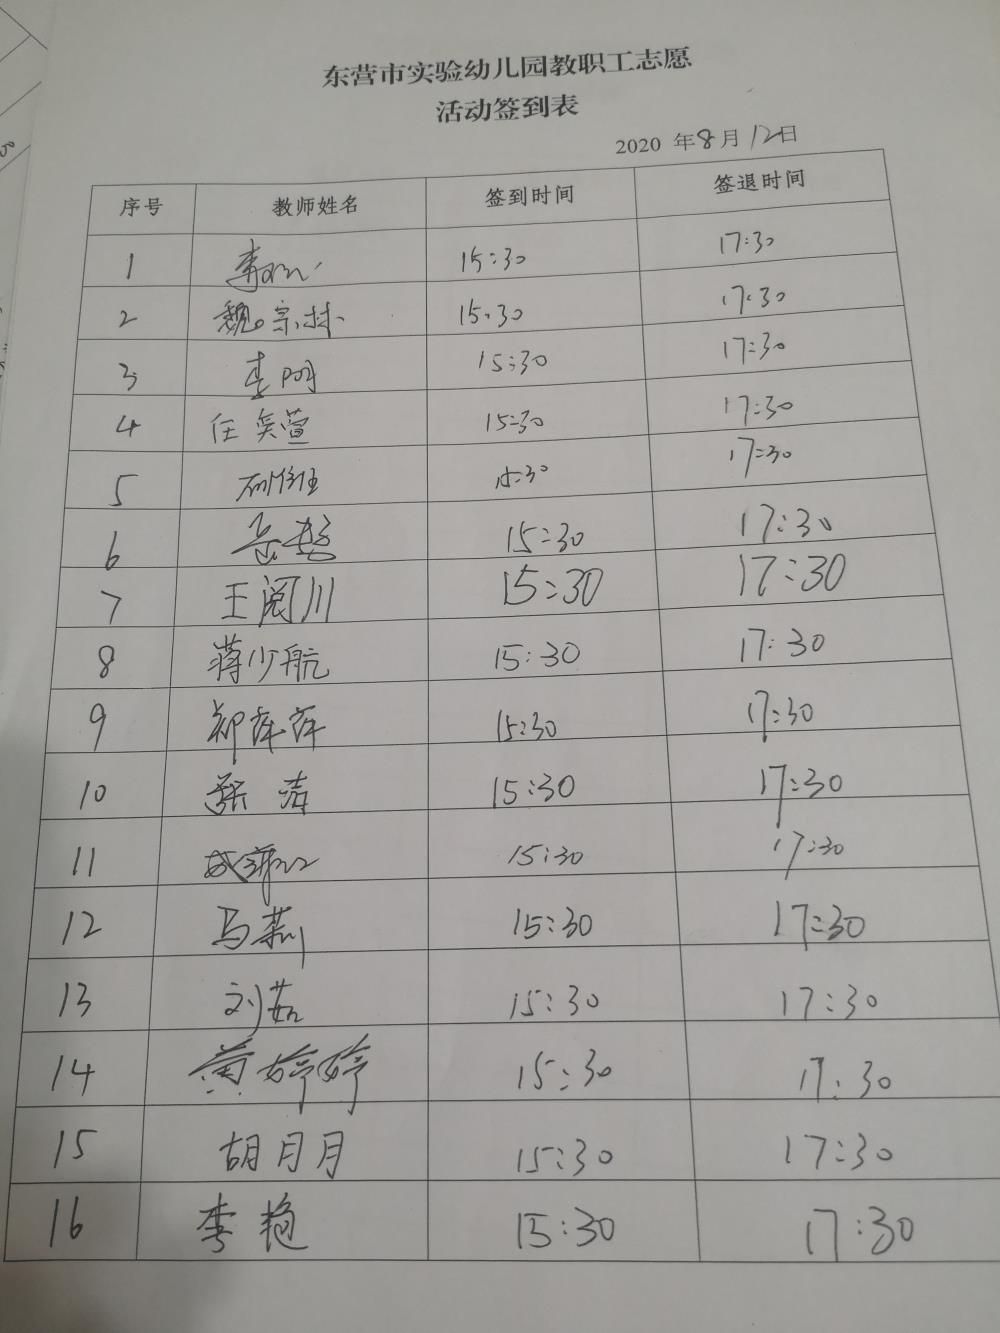 东营市实验幼儿园教职工志愿
活动签到表
2020 年8月12日
序号 教师姓名 签到时间 签退时间
1 15:30 17:30
2 魏宗林 15:30 17:30
3 李明 15:30 17:30
4 任奕萱 15:30 17:30
5 15:30 17:30
6 15:30 17:30
7 王阅川 15:30 17:30
8 蒋少航 15:30 17:30
9 郑萍萍 15:30 17:30
10 张涛 15:30 17:30
11 15:30 17:30
12 马莉 15:30 17:30
13 刘茹 15:30 17:30
14 黄婷婷 15:30 17:30
15 胡月月 15:30 17:30
16 李艳 15:30 17:30